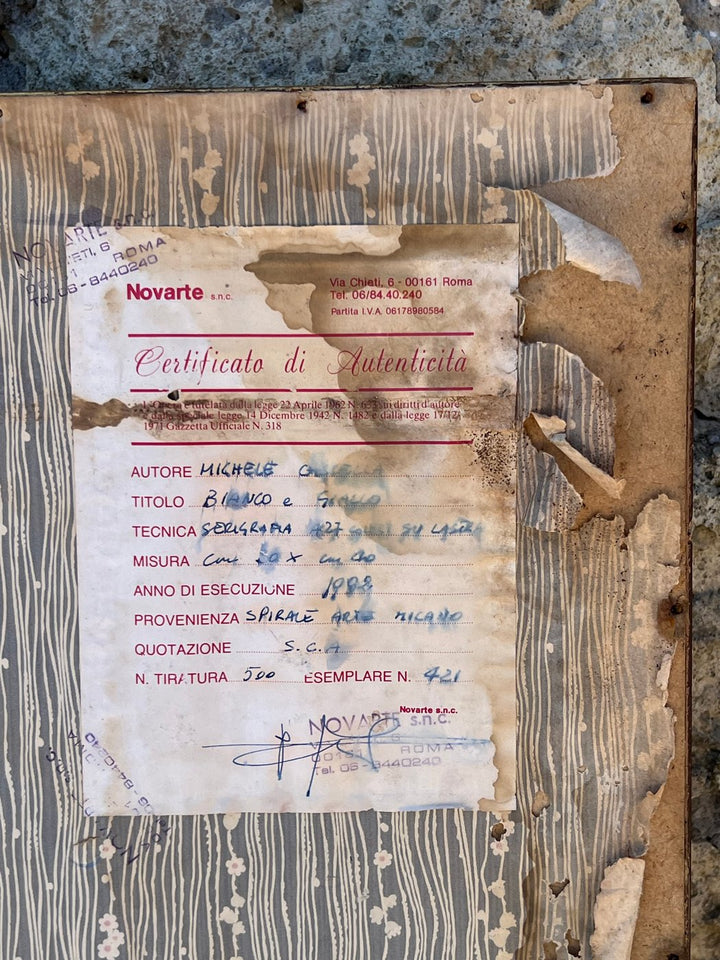 NOVARTE s.n.c.
ROMA
Tel. 06-8440240
Novarte s.n.c.
Via Chieti, 6 - 00161 Roma
Tel. 06/84.40.240
Partita I.V.A. 06178980584
Certificato di Autenticità
L'Opera è tutelata dalla legge 22 Aprile N. sui diritti d'autore
legge 14 Dicembre 1942 N. 1482 e dalla legge 17/12/
1971 Gazzetta Ufficiale N. 318
AUTORE MICHELE
TITOLO BIANCO e GIALLO
TECNICA SERIGRAFIA SU
MISURA cm x cm
ANNO DI ESECUZIONE
PROVENIENZA SPIRALE ARTE MILANO
QUOTAZIONE S.C.A
N. TIRATURA 500 ESEMPLARE N. 421
Novarte s.n.c.
NOVARTE s.n.c.
ROMA
Tel. 06-8440240